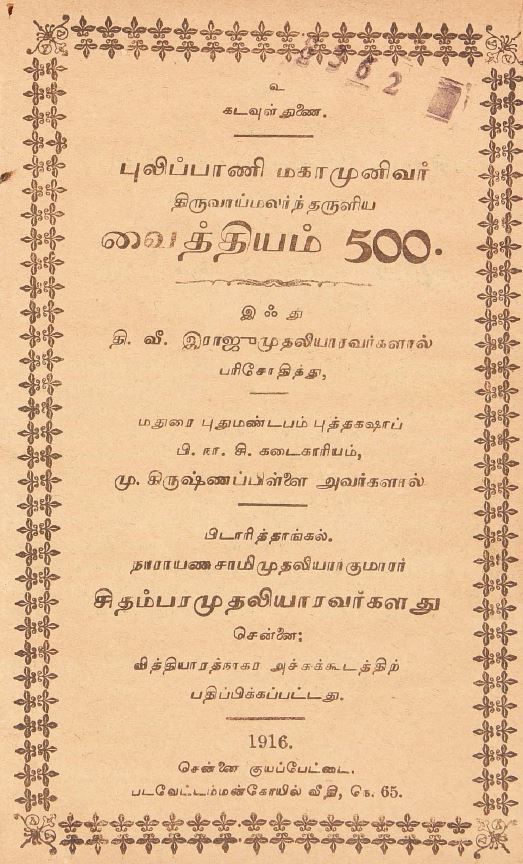 உ
கடவுள் துணை.
புலிப்பாணி மகாமுனிவர்
திருவாய்மலர்ந்தருளிய
வைத்தியம் 500.
இஃது
தி. வீ. இராஜுமுதலியாரவர்களால்
பரிசோதித்து,
மதுரை புதுமண்டபம் புத்தகஷாப்
பி. நா. சி. கடைகாரியம்,
மு. கிருஷ்ணப்பிள்ளை அவர்களால்
பிடாரித்தாங்கல்.
நாராயணசாமிமுதலியார்குமாரர்
சிதம்பரமுதலியாரவர்களது
சென்னை:
வித்தியாரத்நாகர அச்சுக்கூடத்திற்
பதிப்பிக்கப்பட்டது.
1916.
சென்னை சூயப்பேட்டை.
படவேட்டம்மன்கோயில் வீதி, நெ. 65.